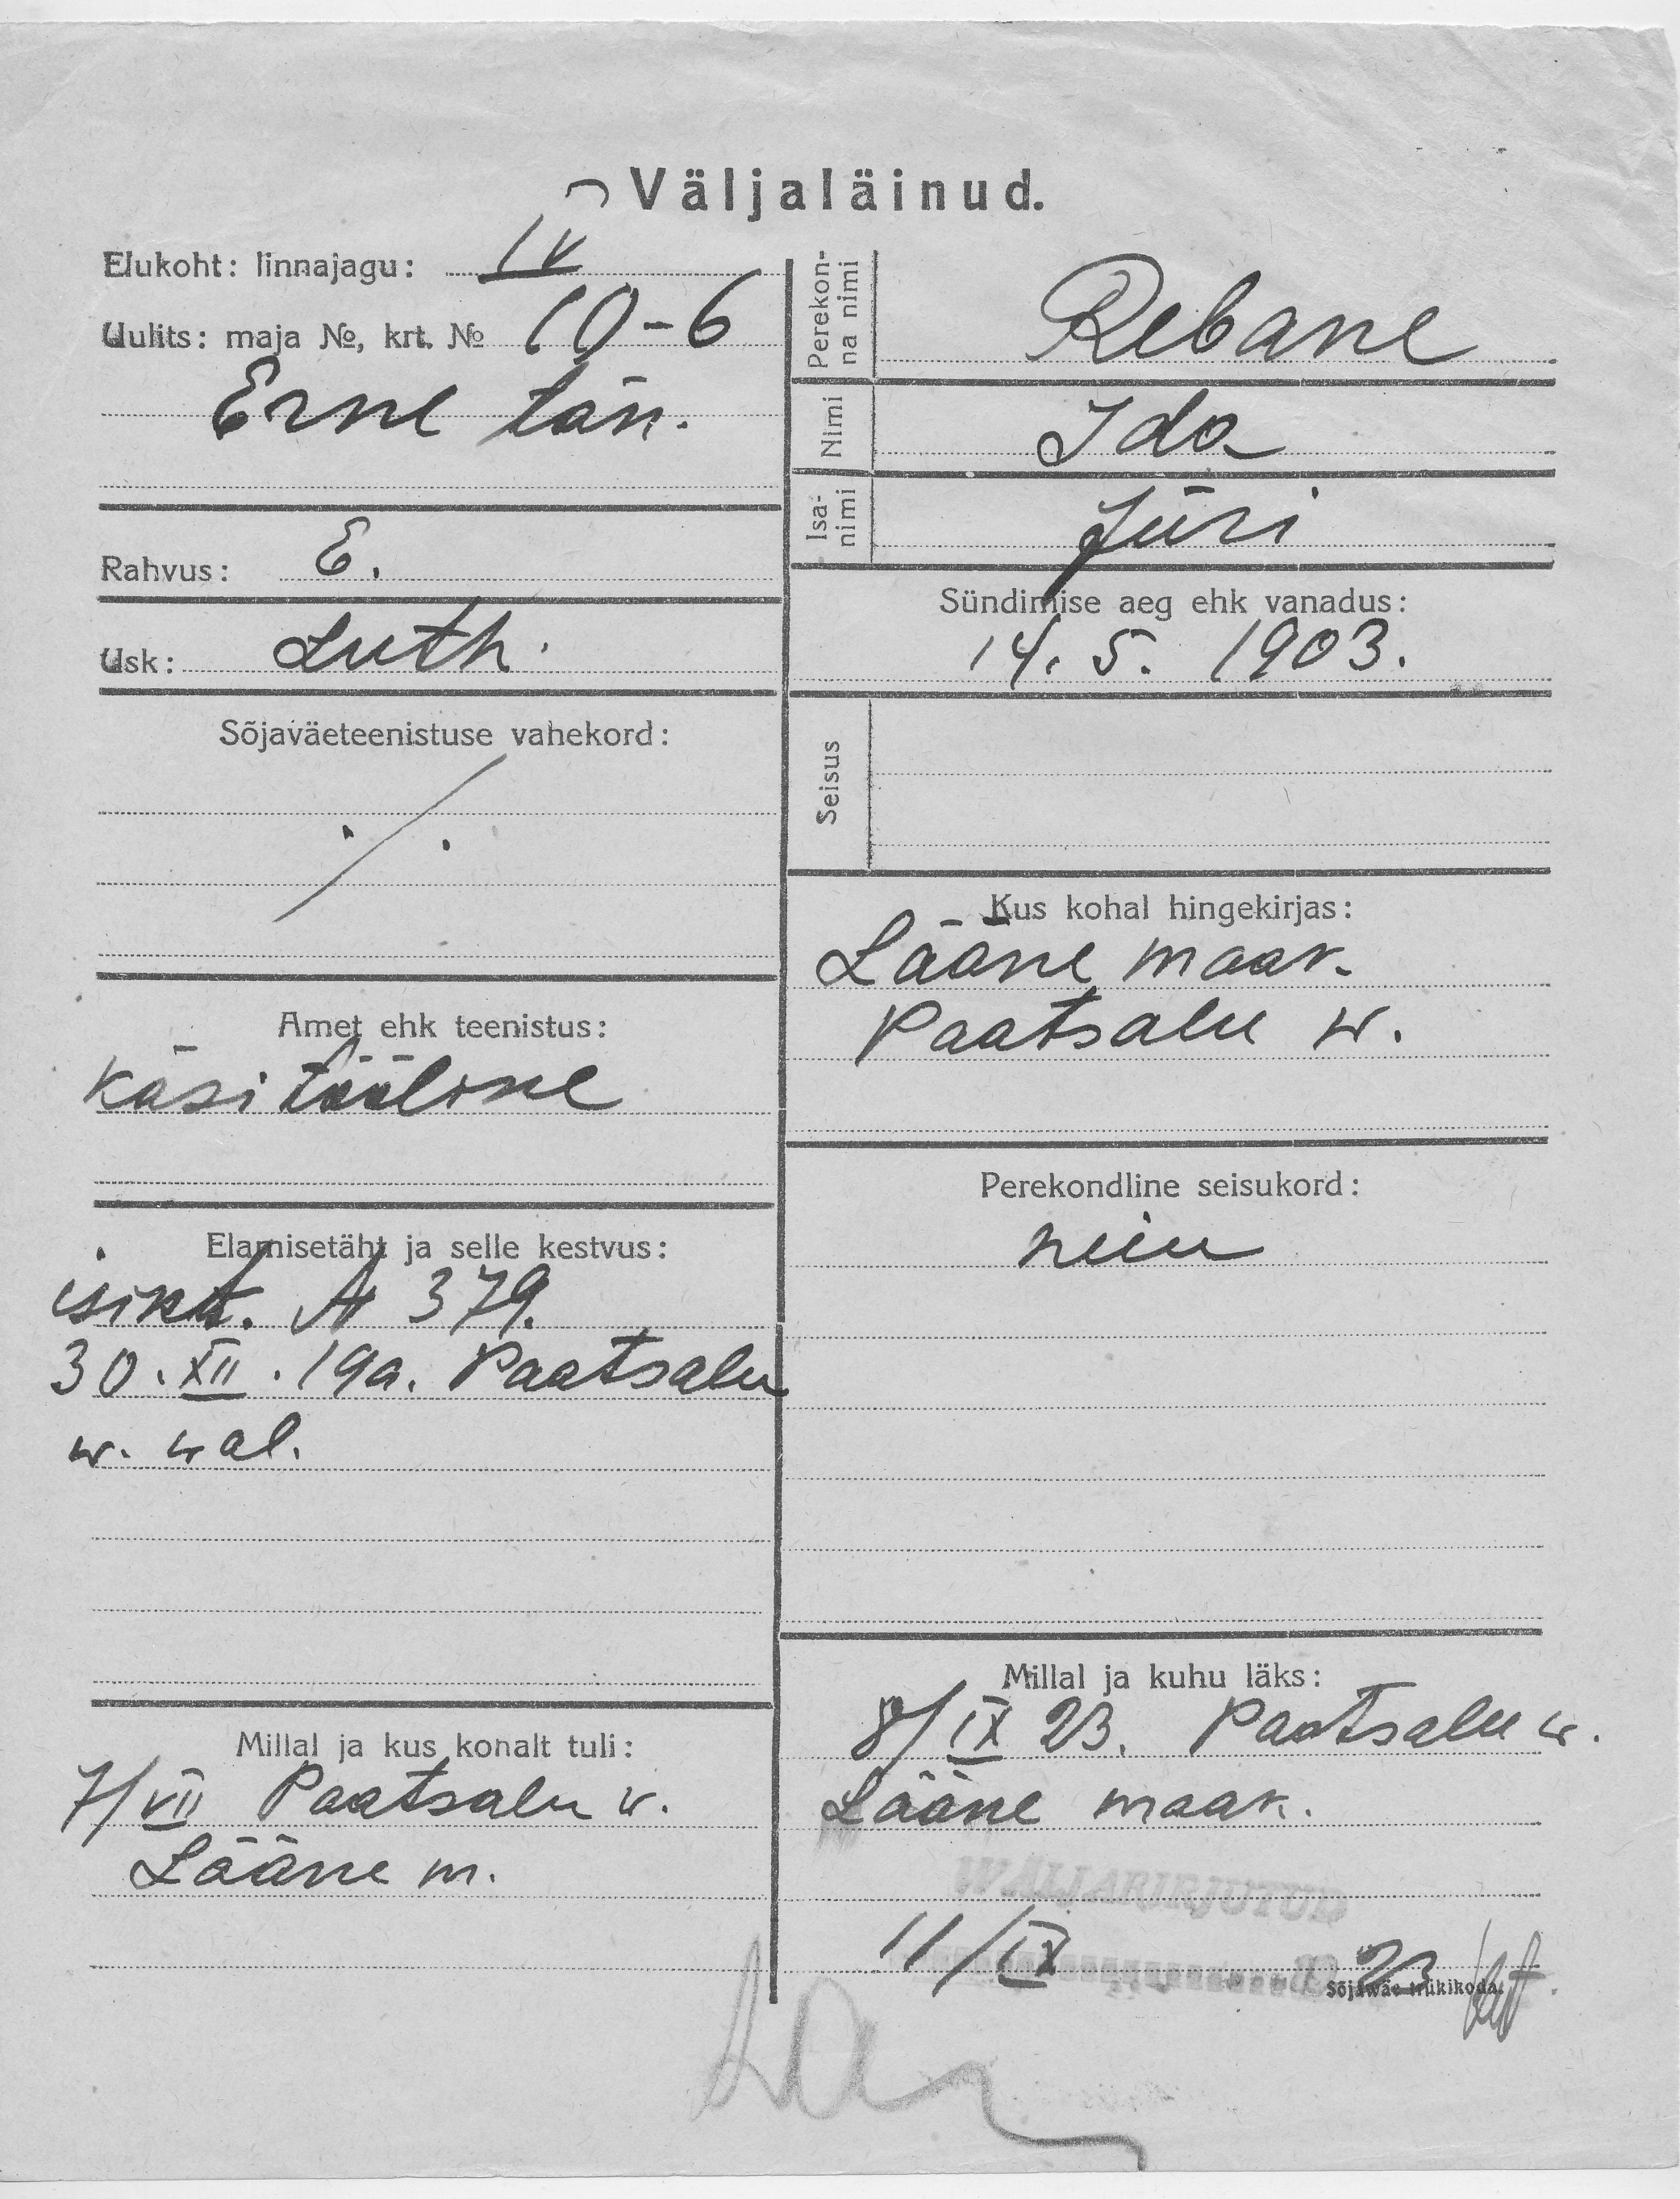 Väljaläinud.
Elukoht: linnajagu: IV
Uulits: maja №, krt. № 10-6
Erne tän.
Rahvus: E.
Usk: Luth.
Sõjaväeteenistuse vahekord:
./.
Amet ehk teenistus:
käsitööline
Elamisetäht ja selle kestvus:
isikt. № 379.
30. XII. 19a. Paatsalu
w. wal.
Millal ja kus konalt tuli:
7/VII Paatsalu w.
Lääne m.
Perekon-
na nimi
Rebane
Nimi
Ida
Isa-
nimi
Jüri
Sündimise aeg ehk vanadus:
14. 5. 1903.
Seisus
Kus kohal hingekirjas:
Lääne maak.
Paatsalu w.
Perekondline seisukord:
neiu
Millal ja kuhu läks:
8/IX 23. Paatsalu w.
Lääne maak.
WÄLJAKIRJUTUD
11/IX 23
Sõjawäe trükikoda.